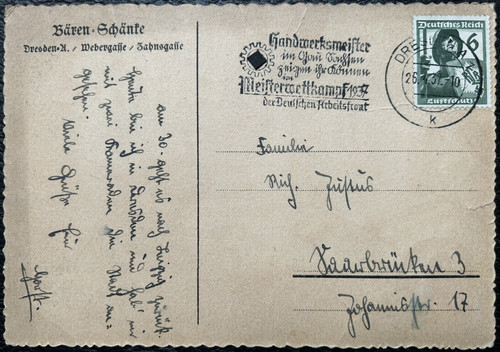 Bären-Schänke
Dresden-A. / Webergasse / Zahnsgasse
am 30. geht es nach Leipzig zurück.
Heute bin ich in Dresden und hab' mir
mit zwei Kameraden die Stadt an-
gesehen. Viele Grüße für
Horst.
Handwerksmeister
im Gau Sachsen
zeigen ihr Können
im
Meisterwettkampf 1937
der Deutschen Arbeitsfront
Deutsches Reich
6
Luftschutz
DRESDEN
k
Familie
Rich. Justus
Saarbrücken 3
Johannisstr. 17